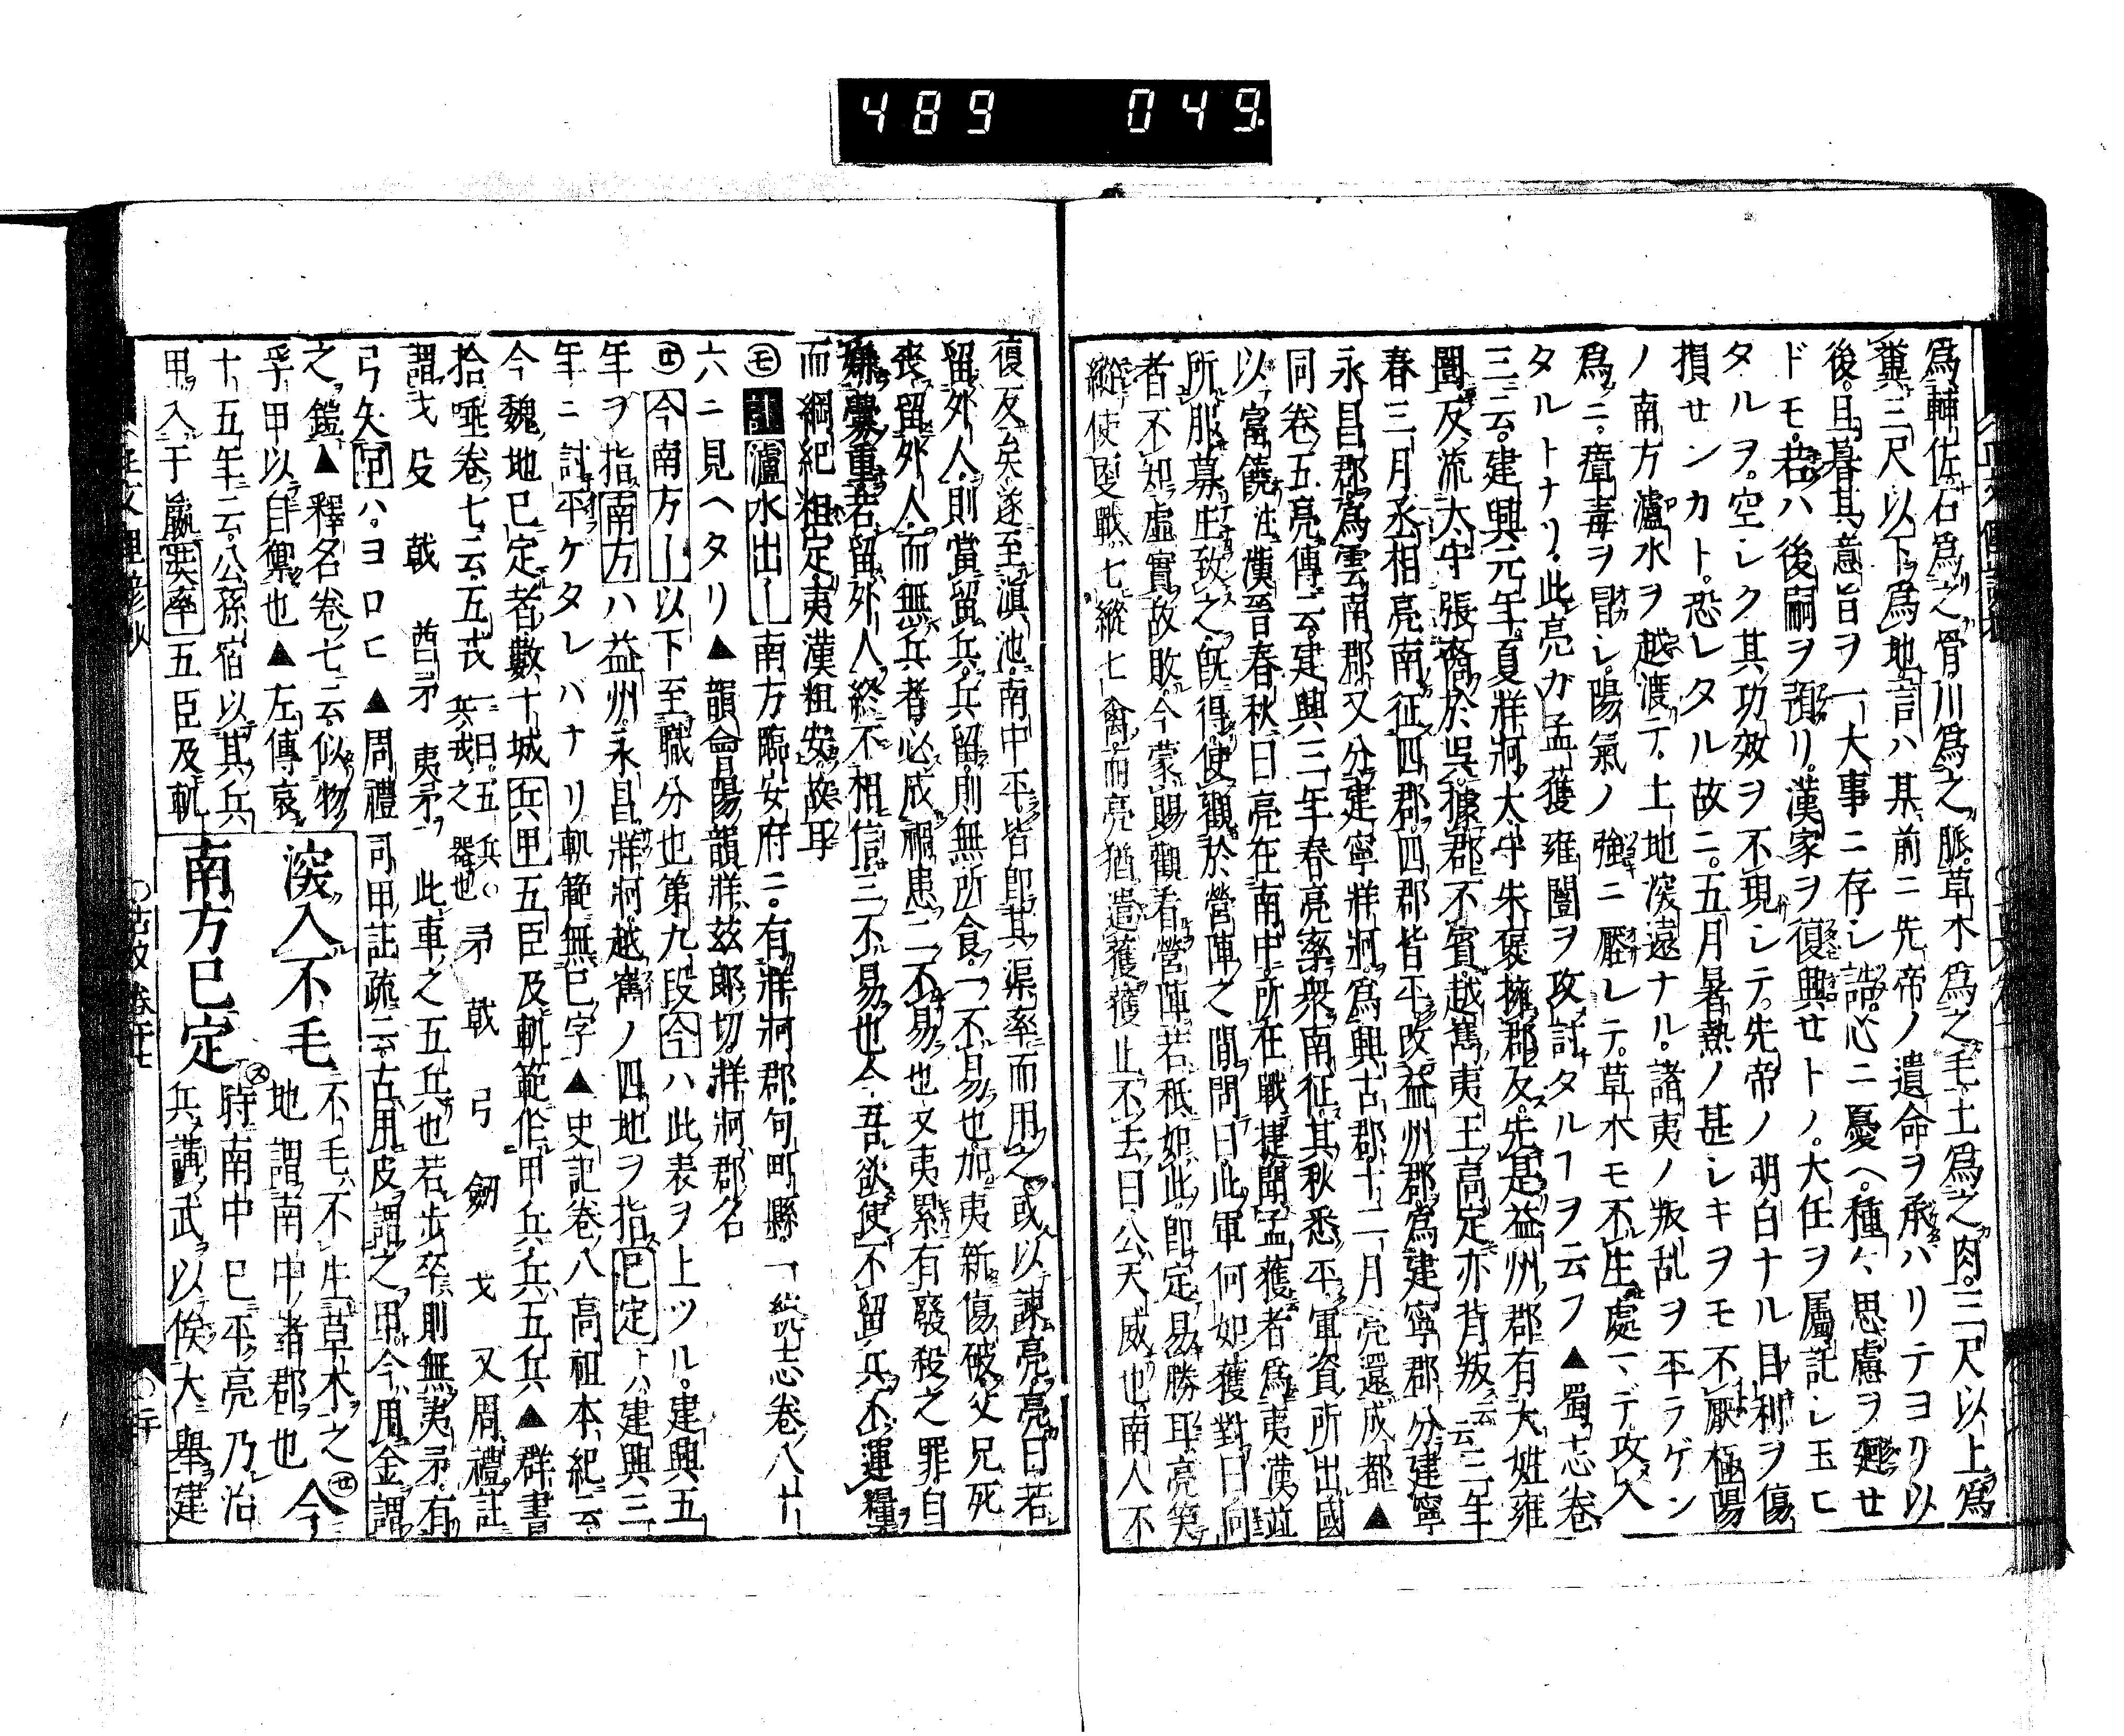 489 049.
爲輔佐石爲之骨川爲之脈草木爲之毛土爲之肉三尺以上爲
糞三尺以下爲地言ハ其前ニ先帝ノ遺命ヲ承ハリテヨリ以
後旦暮其意旨ヲ一大事ニ存シ詰心ニ憂ヘ種々思慮ヲ廻セ
ドモ若ハ後嗣ヲ預リ漢家ヲ復興セトノ大任ヲ屬託シ玉ヒ
タルヲ空シク其功效ヲ不現シテ先帝ノ明白ナル目利ヲ傷
損センカト恐レタル故ニ五月暑熱ノ甚シキヲモ不厭極陽
ノ南方瀘水ヲ越渡テ土地深遠ナル諸夷ノ叛乱ヲ平ラゲン
爲ニ瘴毒ヲ冒シ陽氣ノ強ニ壓レテ草木モ不生處マデ攻入
タルトナリ此亮ガ孟獲雍闓ヲ攻討タルヿヲ云フ▲蜀志卷
三云建興元年夏牂牁太守朱褒擁郡反先是益州郡有大姓雍
闓反流太守張裔於吳據郡不賓越嶲夷王高定亦背叛云三年
春三月丞相亮南征四郡四郡皆平改益州郡爲建寧郡分建寧
永昌郡爲雲南郡又分建寧牂牁爲興古郡十二月亮還成都▲
同卷五亮傳云建興三年春亮率衆南征其秋悉平軍資所出國
以富饒注漢晉春秋曰亮在南中所在戰捷聞孟獲者爲夷漢並
所服募生致之旣得使觀於營陣之間問曰此軍何如獲對曰向
者不知虛實故敗今蒙賜觀看營陣若秪如此卽定易勝耳亮笑
縱使更戰七縱七禽而亮猶遣獲獲止不去曰公天威也南人不
復反矣遂至滇池南中平皆卽其渠率而用之或以諫亮亮曰若
留外人則當留兵兵留則無所食一不易也加夷新傷破父兄死
喪留外人而無兵者必成禍患二不易也又夷累有廢殺之罪自
嫌舋重若留外人終不相信三不易也今吾欲使不留兵不運糧
而綱紀粗定夷漢粗安故耳
㋲ 註 瀘水出― 南方臨安府ニ有牂牁郡句町縣一統志卷八十
六ニ見ヘタリ▲韻會陽韻牂茲郞切牂牁郡名
㋝ 今南方― 以下至職分也第九段今ハ此表ヲ上ツル建興五
年ヲ指南方ハ益州永昌牂牁越嶲ノ四地ヲ指已定トハ建興三
年ニ討平ケタレバナリ軌範無已字▲史記卷八高祖本紀云
今魏地已定者數十城 兵甲 五臣及軌範作甲兵兵五兵▲群書
拾唾卷七云五戎 一曰五兵兵戎之器也 矛 戟 弓 劔 戈 又周禮註
謂戈殳 戟 酋矛 夷矛 此車之五兵也若步卒則無夷矛有
弓矢甲ハヨロヒ▲周禮司甲註疏云古用皮謂之甲今用金謂
之鎧▲釋名卷七云似物
孚甲以自禦也▲左傳哀
十五年云公孫宿以其兵
甲入于嬴奬率五臣及軌
深入不毛
不毛不生草木之
地謂南中諸郡也
㋝今
南方已定
時南中已平亮乃治
兵講武以俟大擧建